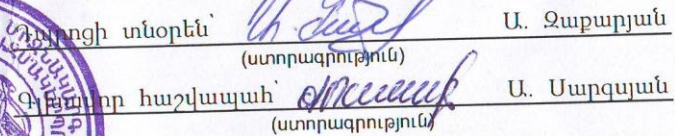 Դպրոցի տնօրեն՝ Ա. Զաքարյան
(ստորագրություն)
Գլխավոր հաշվապահ՝ Ա. Սարգսյան
(ստորագրություն)